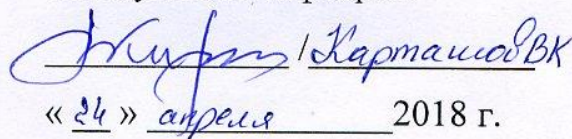 / Карташов ВК
« 24 » апреля 2018 г.